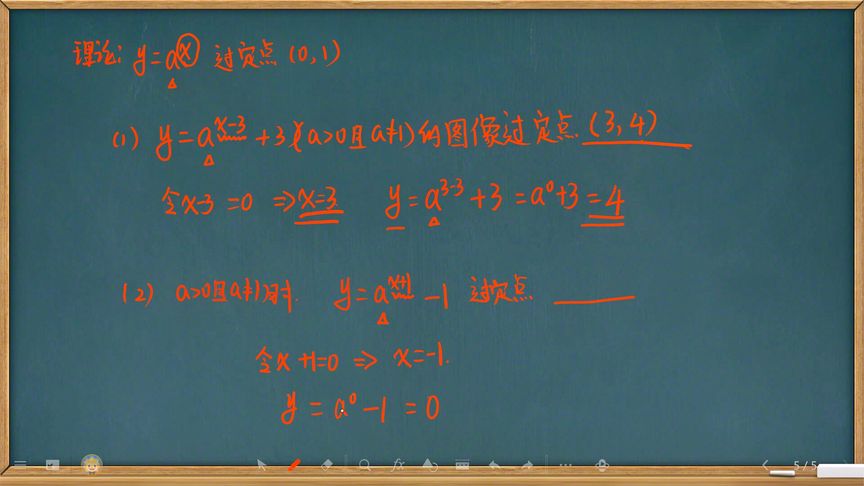 理论: y=aˣ 过定点 (0,1)
(1) y=a^{x-3}+3 (a>0且a≠1)的图像过定点 (3,4)
令x-3=0 ⇒ x=3 y=a^{3-3}+3=a⁰+3=4
(2) a>0且a≠1时. y=a^{x+1}-1 过定点 ______
令x+1=0 ⇒ x=-1.
y=a⁰-1=0
5/5